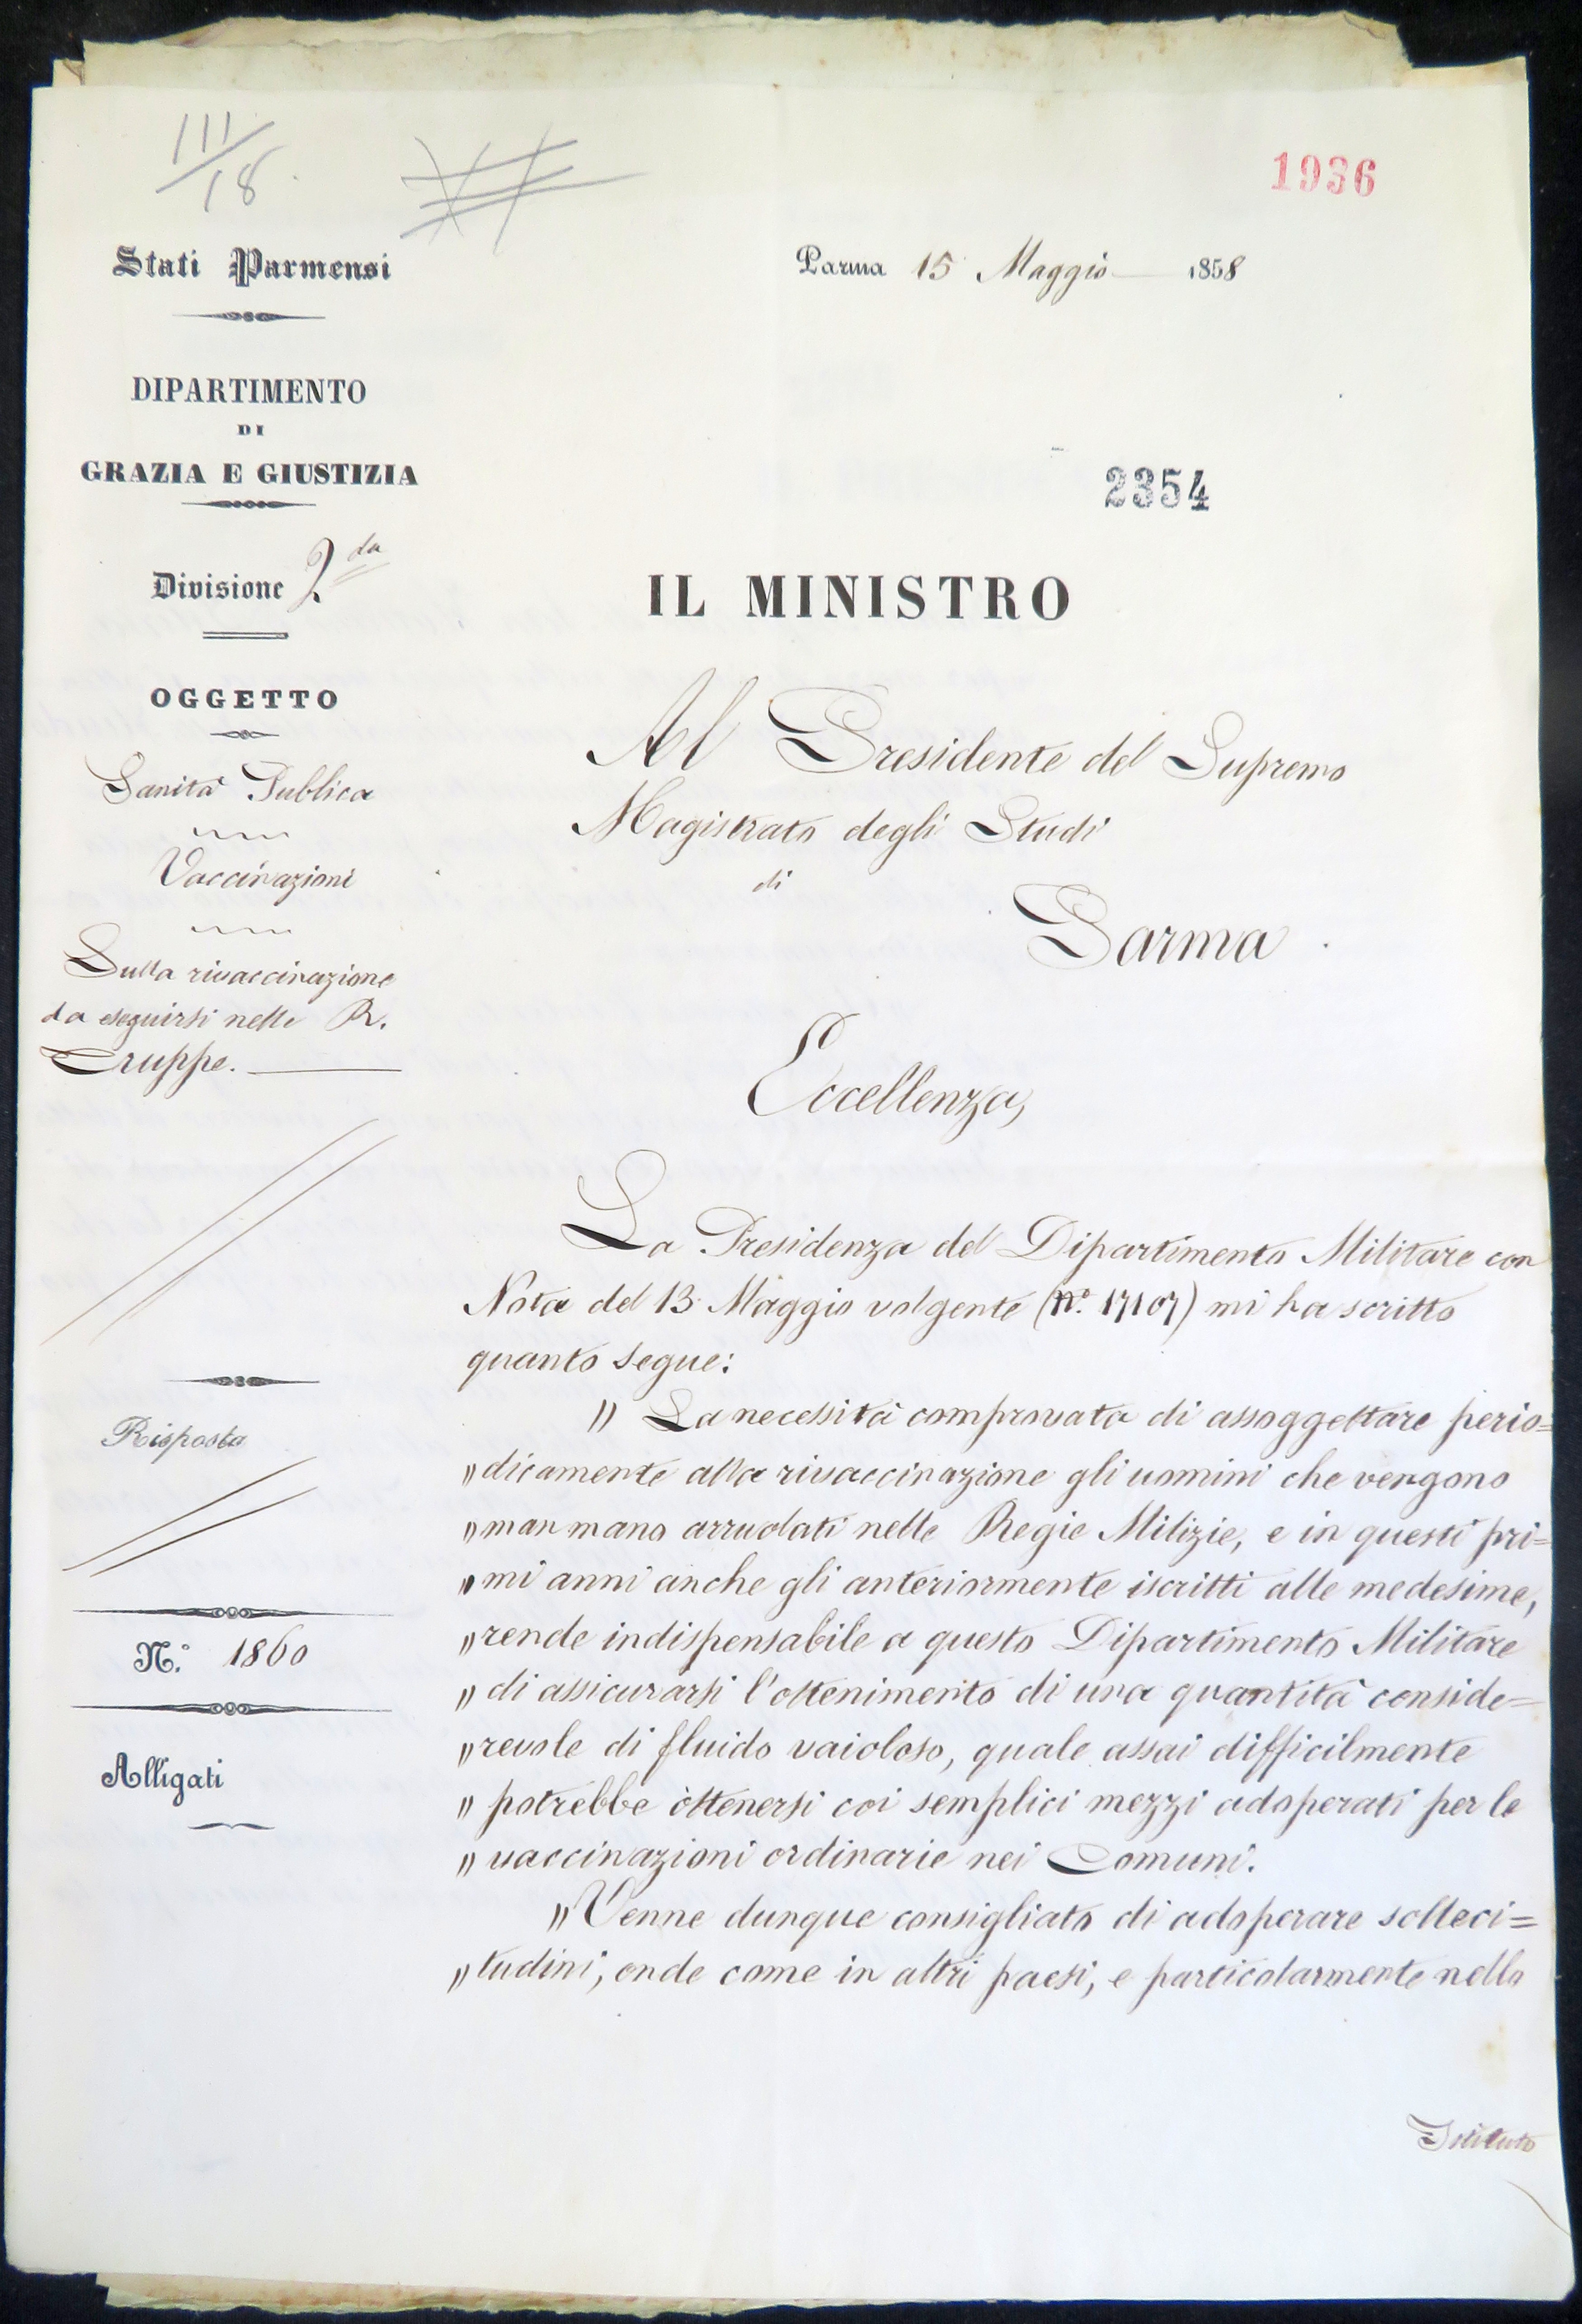 111/18.
1936
Stati Parmensi
Parma 15 Maggio 1858
DIPARTIMENTO
DI
GRAZIA E GIUSTIZIA
2354
Divisione 2.da
IL MINISTRO
OGGETTO
Sanità Publica
Vaccinazioni
Sulla rivaccinazione
da eseguirsi nelle R.
Truppe.
Al Presidente del Supremo
Magistrato degli Studi
di
Parma.
Eccellenza,
La Presidenza del Dipartimento Militare con
Nota del 13 Maggio volgente (N.° 17107) mi ha scritto
quanto segue:
" La necessità comprovata di assoggettare perio=
" dicamente alla rivaccinazione gli uomini che vengono
" man mano arruolati nelle Regie Milizie, e in questi pri=
" mi anni anche gli anteriormente iscritti alle medesime,
" rende indispensabile a questo Dipartimento Militare
" di assicurarsi l'ottenimento di una quantità conside=
" revole di fluido vaioloso, quale assai difficilmente
" potrebbe ottenersi coi semplici mezzi adoperati per le
" vaccinazioni ordinarie nei Comuni.
" Venne dunque consigliato di adoperare solleci=
" tudini, onde come in altri paesi, e particolarmente nello
Istituto
Risposta
N.° 1860
Alligati